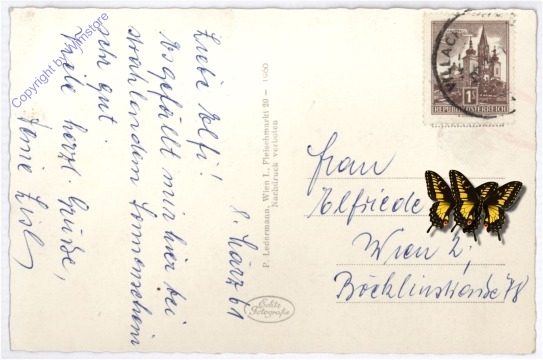 8. März 61
Liebe Elfi!
Es gefällt mir hier bei
strahlendem Sonnenschein
sehr gut.
Viele herzl. Grüße,
Deine
P. Ledermann, Wien I., Fleischmarkt 20 –
Nachdruck verboten
Echte
Fotografie
VILLACH
1S
REPUBLIK ÖSTERREICH
Frau
Elfriede
Wien 2,
Böcklinstraße 78
Copyright by Wmstore